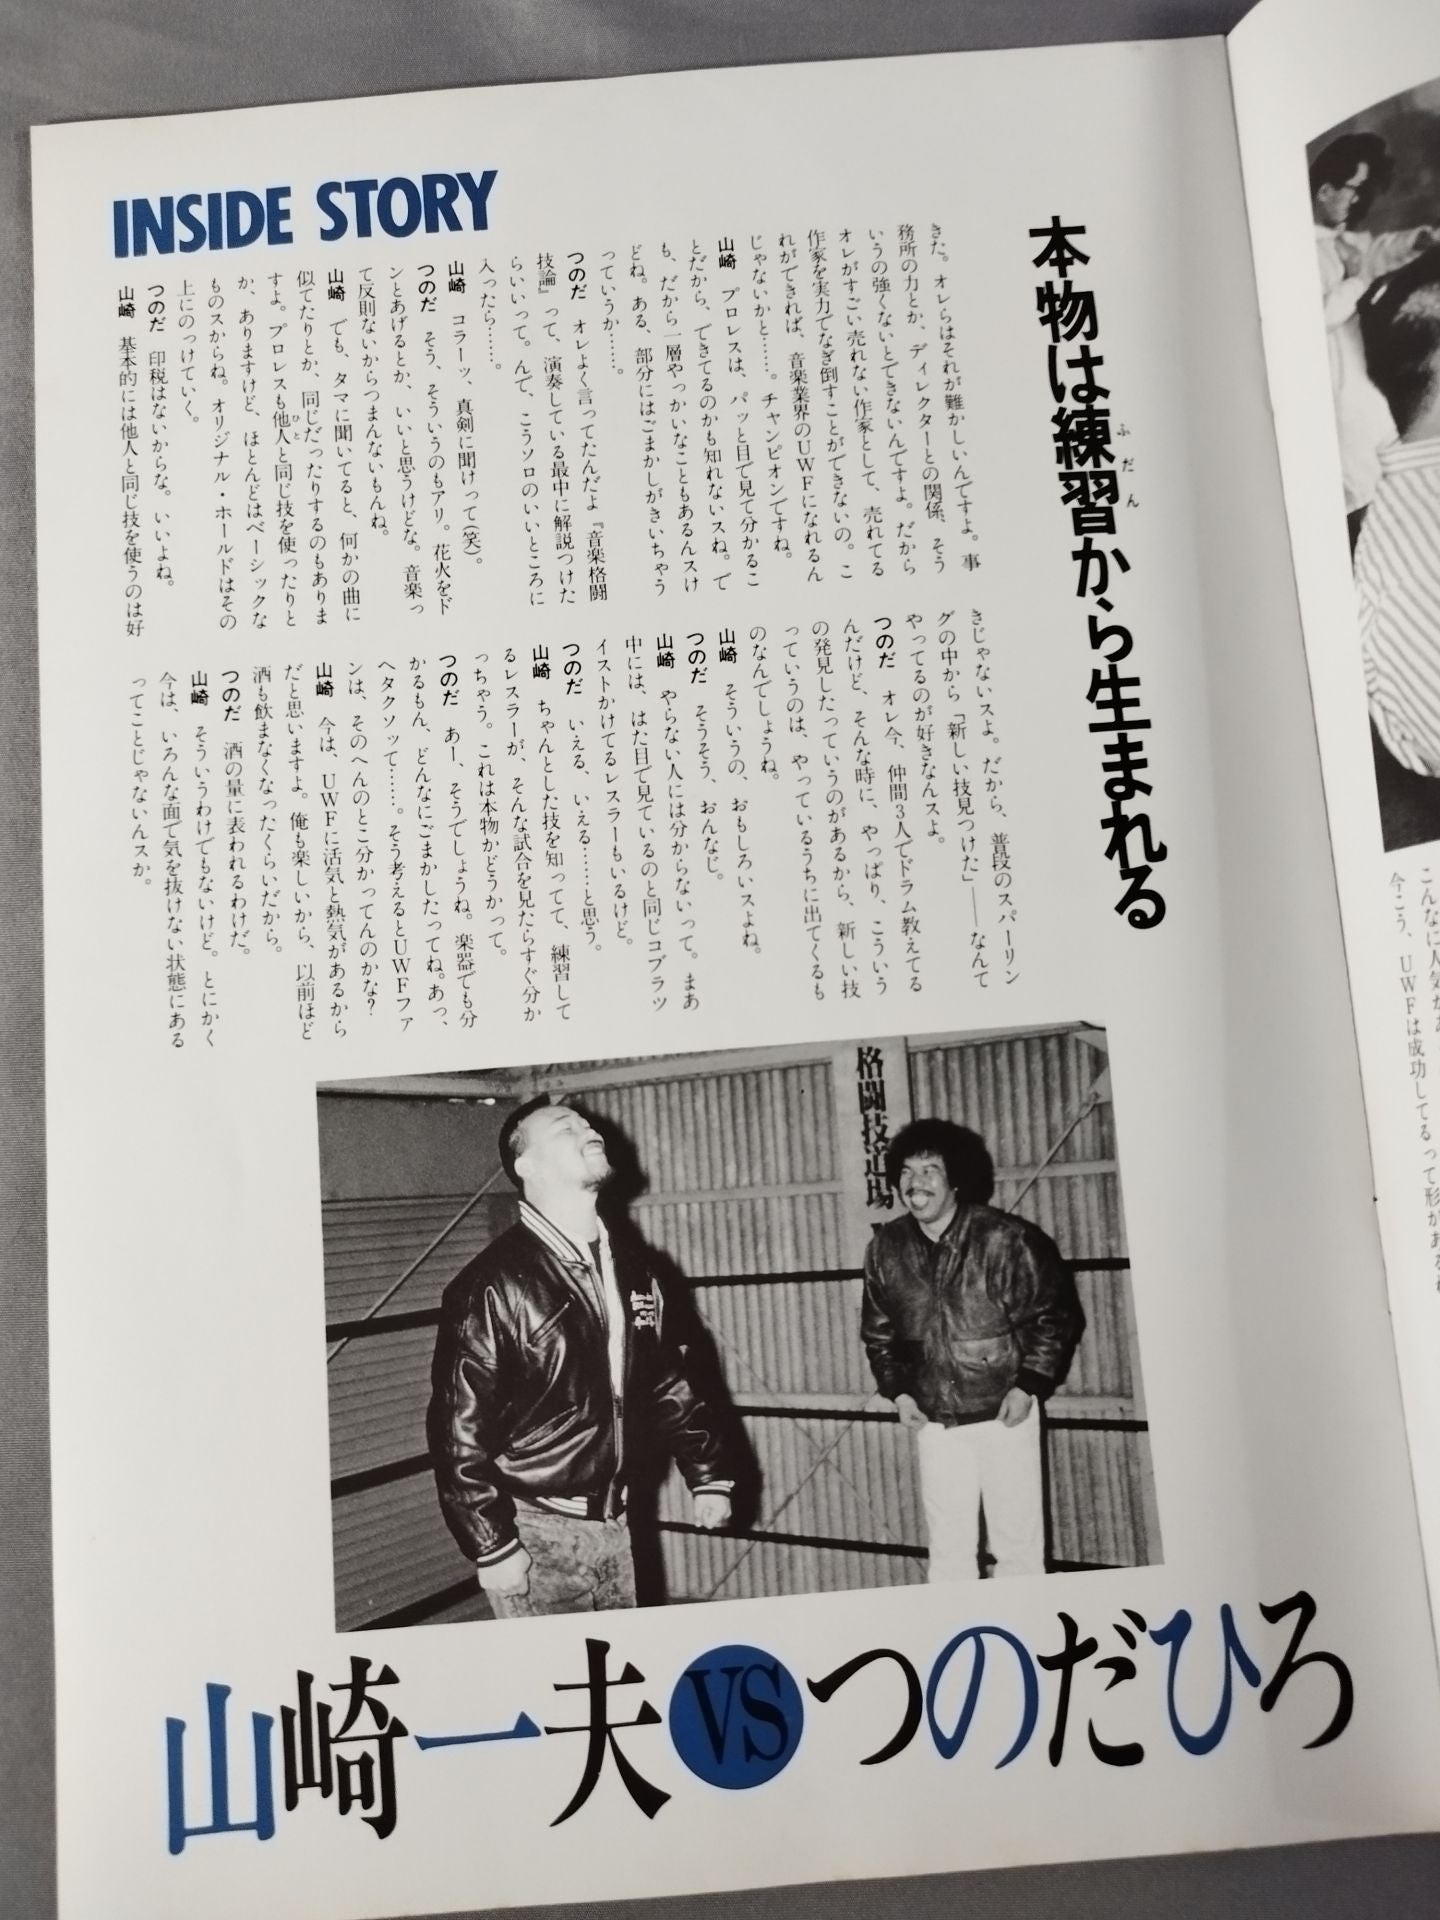 INSIDE STORY
本物は練習から生まれる
ふだん
きた。オレらはそれが難かしいんですよ。事
務所の力とか、ディレクターとの関係、そう
いうの強くないとできないんですよ。だから
オレがすごい売れない作家として、売れてる
作家を実力でなぎ倒すことができないの。こ
れができれば、音楽業界のUWFになれるん
じゃないかと……。チャンピオンですね。
山崎 プロレスは、パッと目で見て分かるこ
とだから、できてるのかも知れないスね。で
も、だから一層やっかいなこともあるんスけ
どね。ある、部分にはごまかしがきいちゃう
っていうか……。
つのだ オレよく言ってたんだよ『音楽格闘
技論』って、演奏している最中に解説つけた
らいいって。んで、こうソロのいいところに
入ったら……。
山崎 コラーッ、真剣に聞けって(笑)。
つのだ そう、そういうのもアリ。花火をド
ンとあげるとか、いいと思うけどな。音楽っ
て反則ないからつまんないもんね。
山崎 でも、タマに聞いてると、何かの曲に
似てたりとか、同じだったりするのもありま
すよ。プロレスも他人と同じ技を使ったりと
ひと
か、ありますけど、ほとんどはベーシックな
ものスからね。オリジナル・ホールドはその
上にのっけていく。
つのだ 印税はないからな。いいよね。
山崎 基本的には他人と同じ技を使うのは好
きじゃないスよ。だから、普段のスパーリン
グの中から「新しい技見つけた」——なんて
やってるのが好きなんスよ。
つのだ オレ今、仲間3人でドラム教えてる
んだけど、そんな時に、やっぱり、こういう
の発見したっていうのがあるから、新しい技
っていうのは、やっているうちに出てくるも
のなんでしょうね。
山崎 そういうの、おもしろいスよね。
つのだ そうそう、おんなじ。
山崎 やらない人には分からないって。まあ
中には、はた目で見ているのと同じコブラツ
イストかけてるレスラーもいるけど。
つのだ いえる、いえる……と思う。
山崎 ちゃんとした技を知ってて、練習して
るレスラーが、そんな試合を見たらすぐ分か
っちゃう。これは本物かどうかって。
つのだ あー、そうでしょうね。楽器でも分
かるもん、どんなにごまかしたってね。あっ、
ヘタクソッて……。そう考えるとUWFファ
ンは、そのへんのとこ分かってんのかな?
山崎 今は、UWFに活気と熱気があるから
だと思いますよ。俺も楽しいから、以前ほど
酒も飲まなくなったくらいだから。
つのだ 酒の量に表われるわけだ。
山崎 そういうわけでもないけど。とにかく
今は、いろんな面で気を抜けない状態にある
ってことじゃないんスか。
格闘技道場
山崎一夫VSつのだひろ
今こう、UWFは成功してるって形がある